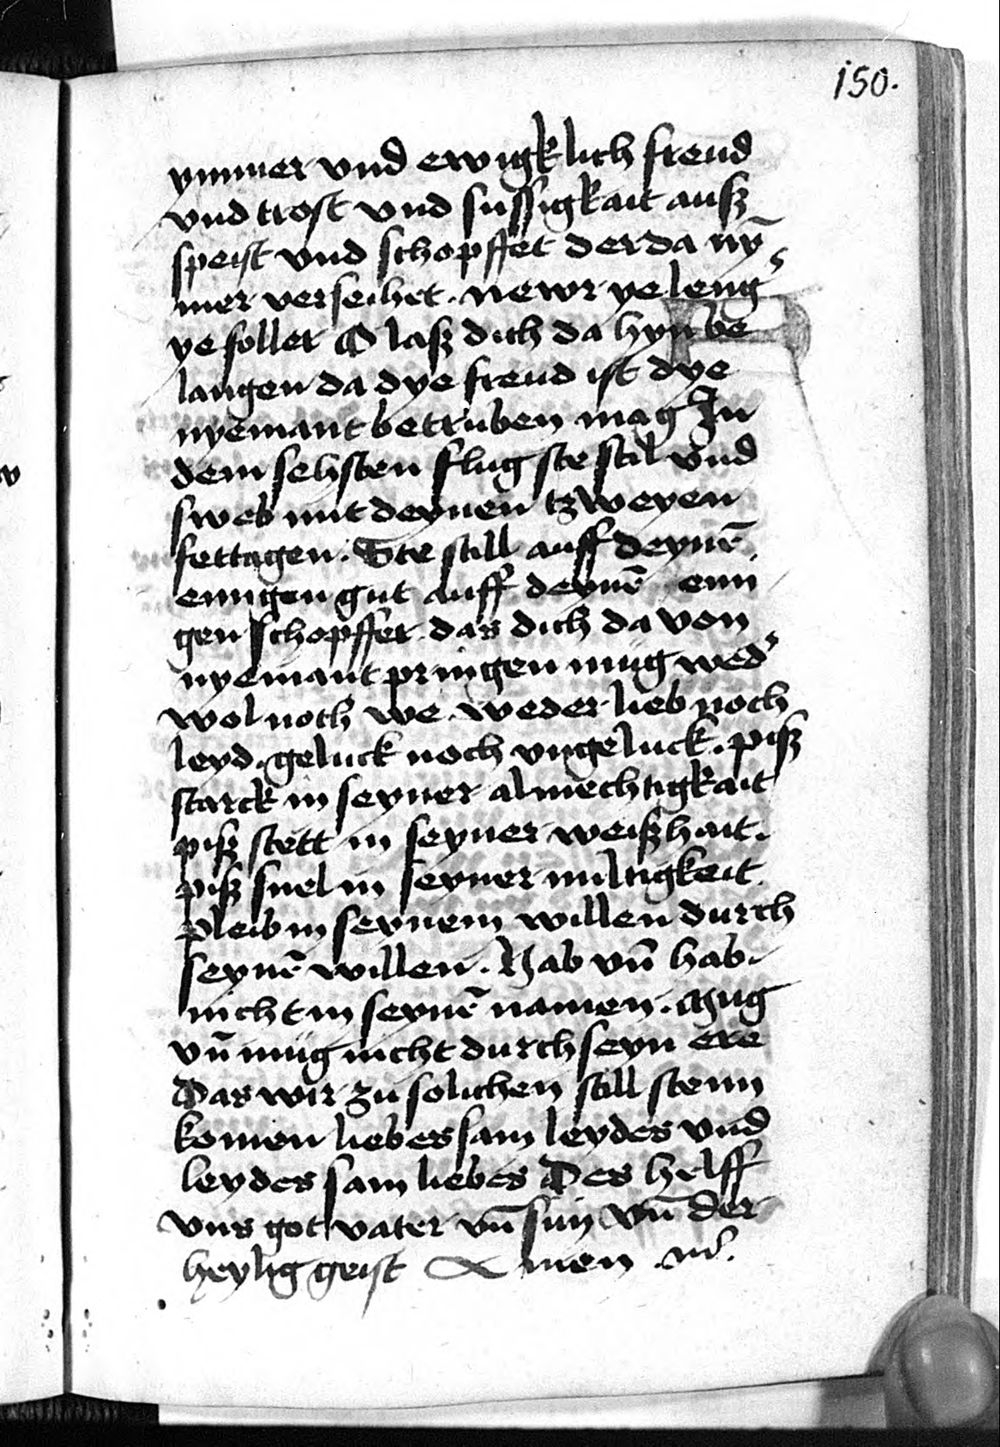 150.
ymmer vnd ewigklich freud
vnd trost vnd sussigkait auß
speist vnd schopffet der da ny̅
mer verseihet. Newr ye leng
ye foller O laß dich da hyn be
langen da dye freud ist dye
nyemant betruben mag In
dem sehsten flug ste stil vnd
sweb mit deynen tzweyen
fettagen. Ste still auff deyne̅
eynigen gut auff deyne̅ eini
gen schopffer das dich da von
nyemant pringen mug wed'
wol noch we. weder lieb noch
leyd. geluck noch vngeluck. piß
starck in seyner almechtigkait
piß stett in seyner weißhait.
piß snel in seyner miltigkeit
pleib in seynem willen durch
seyne̅ willen. Hab vn̅ hab
nicht in seyne̅ namen. Mug
vn̅ mug nicht durch seyn ere
Das wir zu solichen still stenn
komen liebes sam leydes vnd
leydes sam liebes Des helff
vns got vater vn̅ sun vn̅ der
heylig geist Amen